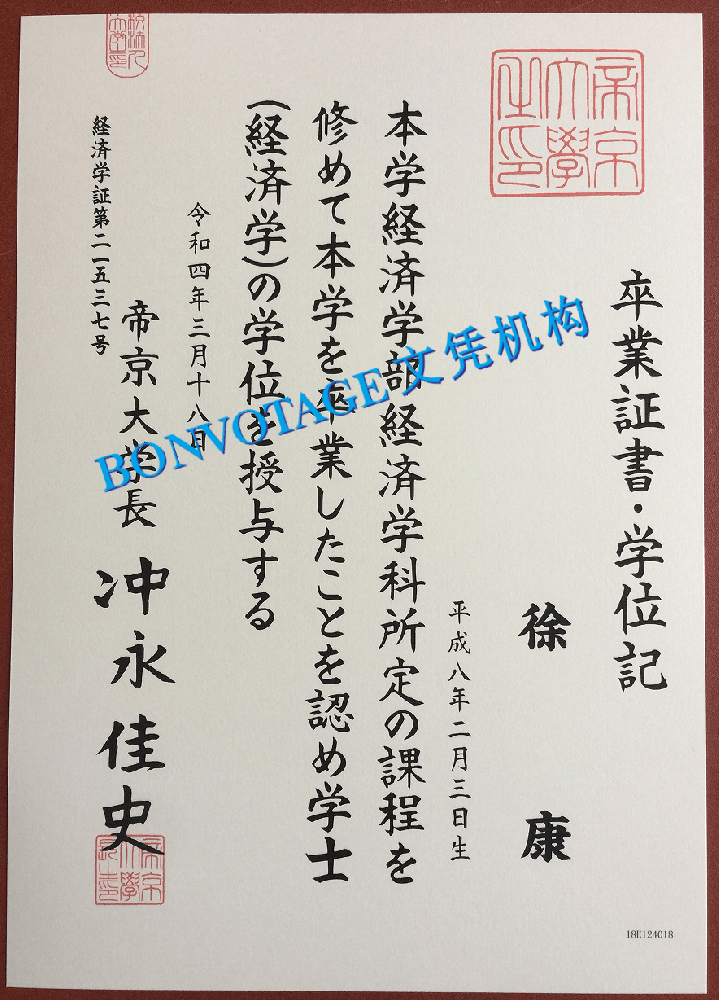 卒業証書・学位記
徐康
平成八年二月三日生
本学経済学部経済学科所定の課程を
修めて本学を卒業したことを認め学士
(経済学)の学位を授与する
令和四年三月十八日
帝京大学長 冲永佳史
経済学証第二一五三七号
帝京大學之印
帝京大學長印
BONVOTAGE文凭机构
18E124018